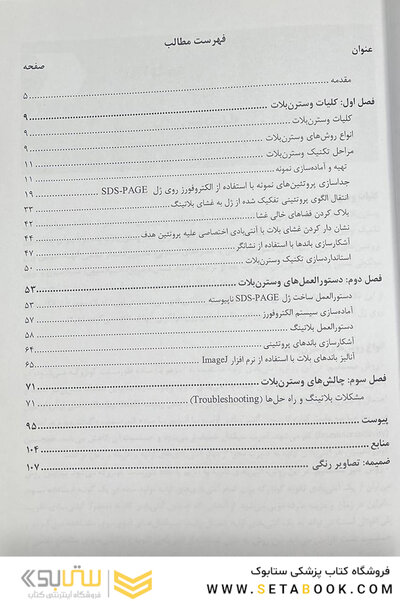 فهرست مطالب
عنوان
صفحه
مقدمه ۵
فصل اول: کلیات وسترن‌بلات ۹
کلیات وسترن‌بلات ۹
انواع روش‌های وسترن‌بلات ۹
مراحل تکنیک وسترن‌بلات ۱۱
تهیه و آماده‌سازی نمونه ۱۱
جداسازی پروتئین‌های نمونه با استفاده از الکتروفورز روی ژل SDS-PAGE ۱۹
انتقال الگوی پروتئینی تفکیک شده از ژل به غشای بلاتینگ ۳۳
بلاک کردن فضاهای خالی غشا ۴۲
نشان دار کردن غشای بلات با آنتی‌بادی اختصاصی علیه پروتئین هدف ۴۴
آشکارسازی باندها با استفاده از نشانگر ۴۷
استانداردسازی تکنیک وسترن‌بلات ۵۰
فصل دوم: دستورالعمل‌های وسترن‌بلات ۵۳
دستورالعمل ساخت ژل SDS-PAGE ناپیوسته ۵۳
آماده‌سازی سیستم الکتروفورز ۵۷
دستورالعمل بلاتینگ ۵۸
آشکارسازی باندهای پروتئینی ۶۴
آنالیز باندهای بلات با استفاده از نرم افزار ImageJ ۶۵
فصل سوم: چالش‌های وسترن‌بلات ۷۱
مشکلات بلاتینگ و راه حل‌ها (Troubleshooting) ۷۱
پیوست ۹۵
منابع ۱۰۴
ضمیمه: تصاویر رنگی ۱۰۷
فروشگاه کتاب پزشکی ستابوک
WWW.SETABOOK.COM
ستابوک
فروشگاه اینترنتی کتاب